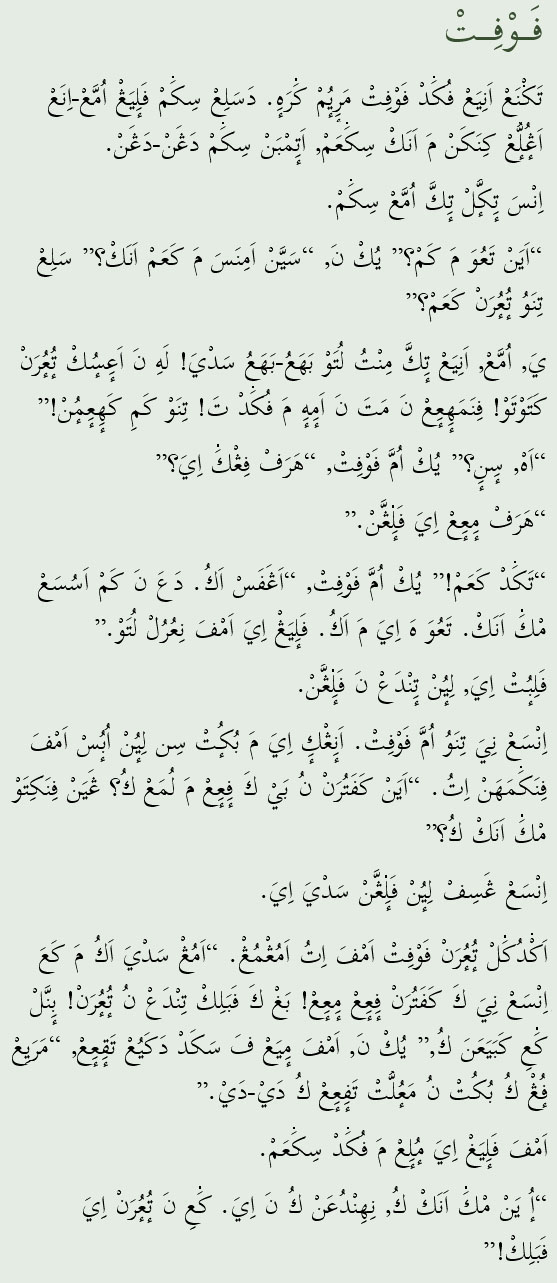 فَـوْفِـتْ
تَكْنَعْ اَنِيَعْ فُكَٰدْ فَوْفِتْ مَرٖيُمْ كَٰرَهٖ. دَسَلِعْ سِكَٰمْ فَلٖيَڠْ اُمَّعْ-اِنَعْ
اَڤُلٗعْ كِنَكَنْ مَ اَنَكْ سِكَٰعَمْ, اَتٖمْبَنْ سِكَٰمْ دَڠَنْ-دَڠَنْ.
اِنْسَ تٖكَّلْ تٖكَّ اُمَّعْ سِكَٰمْ.
“اَيَنْ تَعُوَ مَ كَمْ؟” يُكْ نَ, “سَيَّنْ اَمِنَسَ مَ كَعَمْ اَنَكْ؟” سَلِعْ
تِنَوُ تٗعُرَنْ كَعَمْ؟”
يَ, اُمَّعْ, اَنِيَعْ تٖكَّ مِنْتُ لُتَوْ بَهَعُ-بَهَعُ سَدْيَ! لَهِ نَ اَعٖسُكْ تٗعُرَنْ
كَتَوْتَوْ! فِنَمَهٖعِعْ نَ مَتَ نَ اَمِهٖ مَ فُكَٰدْ تَ! تِنَوْ كَمِ كَهٖعِمُنْ!”
“اَهْ, سِٖنٖ؟” يُكْ اُمَّ فَوْفِتْ, “هَرَفْ فِڠْكَٰ اِيَ؟”
“هَرَفْ مِٖعِعْ اِيَ فَلٖڠَّنْ.”
“تَكَٰدْ كَعَمْ!” يُكْ اُمَّ فَوْفِتْ, “اَڠَفَسْ اَكُ. دَعَ نَ كَمْ اَسُسَعْ
مْكَٰ اَنَكْ. تَعُوَ هَ اِيَ مَ اَكُ. فَلٖيَڠْ اِيَ اَمْفَ نِعُرُلْ لُتَوْ.”
فَلِبُتْ اِيَ, لِيُنْ تٖنْدَعْ نَ فَلٖڠَّنْ.
اِنْسَعْ نِيَ تِنَوُ اُمَّ فَوْفِتْ. اَنِڠْكٖ اِيَ مَ بُكُتْ سِن لِيُنْ اُبُسْ اَمْفَ
فِنَكَٰمَهَنْ اِتُ. “اَيَنْ كَفَتُرَنْ نُ بَيْ كَ فِٖعِعْ مَ لُمَعْ كُ؟ ڠَيَنْ فِنَكِتَوْ
مْكَٰ اَنَكْ كُ؟”
اِنْسَعْ ڠَسِفْ لِيُنْ فَلٖڠَّنْ سَدْيَ اِيَ.
اَكْدُكَٰلْ تٗعُرَنْ فَوْفِتْ اَمْفَ اِتُ اَمُڠْمُڠْ. “اَمُڠْ سَدْيَ اَكُ مَ كَعَ
اِنْسَعْ نِيَ كَ كَفَتُرَنْ فِٖعِعْ مِٖعِعْ! بَڠْ كَ فَبَلِكْ تٖنْدَعْ نُ تٗعُرَنْ! بِٖنَّلْ
كَٰعِ كَبَيَعَنَ كُ,” يُكْ نَ, اَمْفَ مِٖيَعْ فَ سَكَدْ دَكَيُعْ تَقِٖعِعْ, “مَرَيِعْ
فُٖڠْ كُ بُكُتْ نُ مَعُلَّتْ تَفِٖعِعْ كُ دَيْ-دَيْ.”
اَمْفَ فَلٖيَڠْ اِيَ مُلِٖعْ مَ فُكَٰدْ سِكَٰعَمْ.
“اٖ يَنْ مْكَٰ اَنَكْ كُ, نِهِنْدُعَنْ كُ نَ اِيَ. كَٰعِ نَ تٗعُرَنْ اِيَ
فَبَلِكْ!”